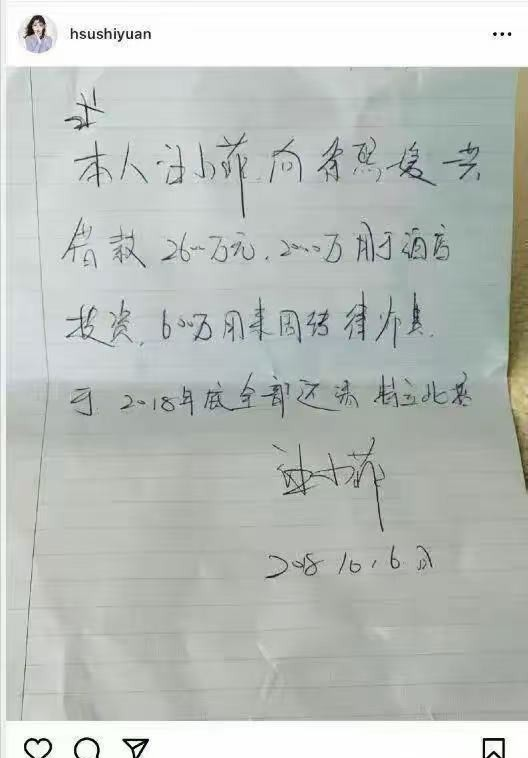 hsushiyuan
本人汪小菲向徐熙媛共
借款2600万元.2000万用于酒店
投资.600万用来周转律师费.
于2018年底全部还清 特立此据
汪小菲
2018.10.16日